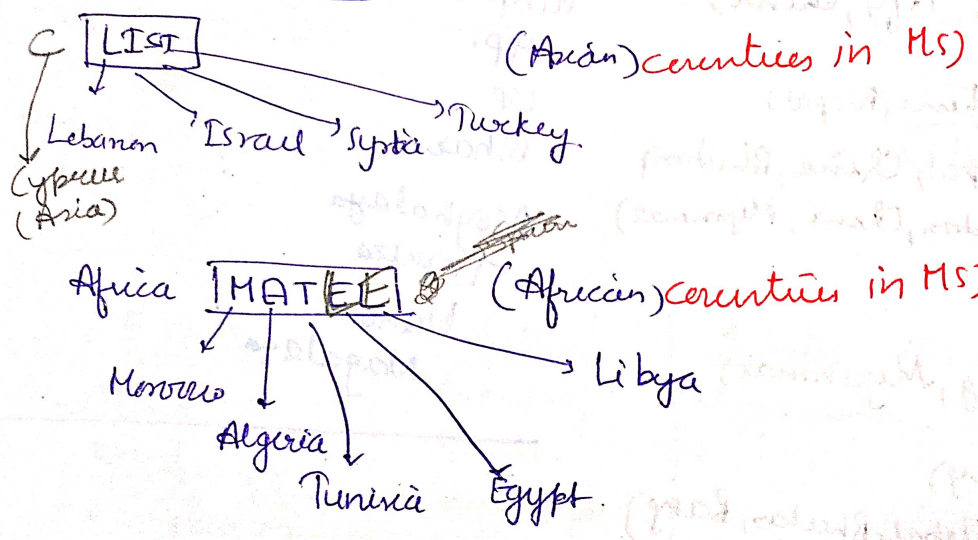 C LIST (Asian) countries in MS)
Lebanon Israel Syria Turkey.
Cyprus
(Asia)
Africa MATEE (African) countries in MS)
Morocco Libya
Algeria
Tunisia Egypt.